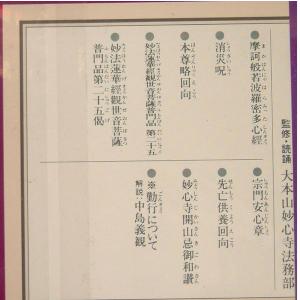 監修・読誦 大本山妙心寺法務部
●摩訶般若波羅密多心経
●消災呪
●本尊略回向
●妙法蓮華經觀世音菩薩普門品第二十五
●妙法蓮華經觀世音菩薩
普門品第二十五偈
●宗門安心章
●先亡供養回向
●妙心寺開山忌御和讃
●※勤行について
解説:中島義観